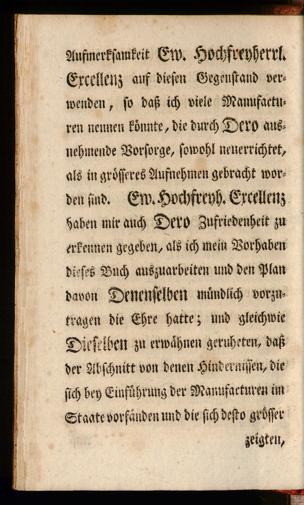 Aufmerksamkeit Ew. Hochfreyherrl.
Excellenz auf diesen Gegenstand ver-
wenden, so daß ich viele Manufactu-
ren nennen könnte, die durch Dero aus-
nehmende Vorsorge, sowohl neuerrichtet,
als in grösseres Aufnehmen gebracht wor-
den sind. Ew. Hochfreyh. Excellenz
haben mir auch Dero Zufriedenheit zu
erkennen gegeben, als ich mein Vorhaben
dieses Buch auszuarbeiten und den Plan
davon Denenselben mündlich vorzu-
tragen die Ehre hatte; und gleichwie
Dieselben zu erwähnen geruheten, daß
der Abschnitt von denen Hindernissen, die
sich bey Einführung der Manufacturen im
Staate vorfänden und die sich desto grösser
zeigten,